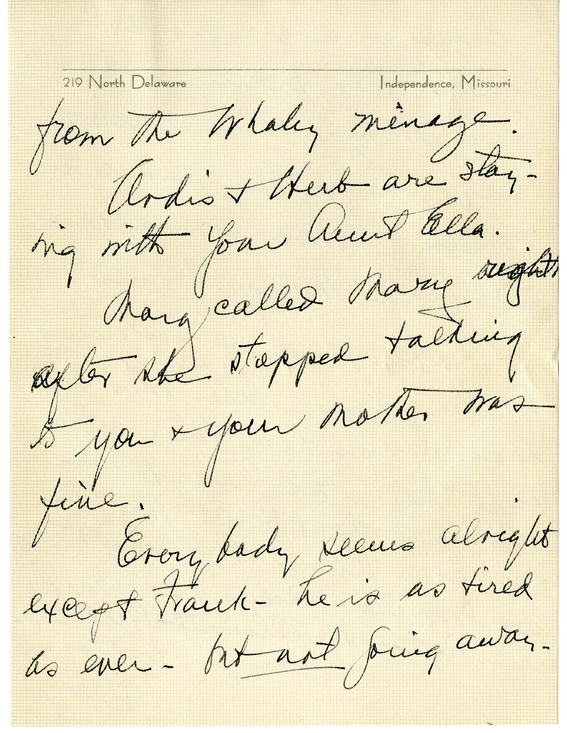 219 North Delaware Independence, Missouri
from the Whaley mènage.
Ardis & Herb are stay-
ing with your Aunt Ella.
Marg called Mary right
after she stopped talking
to you & your mother was
fine.
Every body seems alright
except Frank - he is as tired
as ever - but not going away -